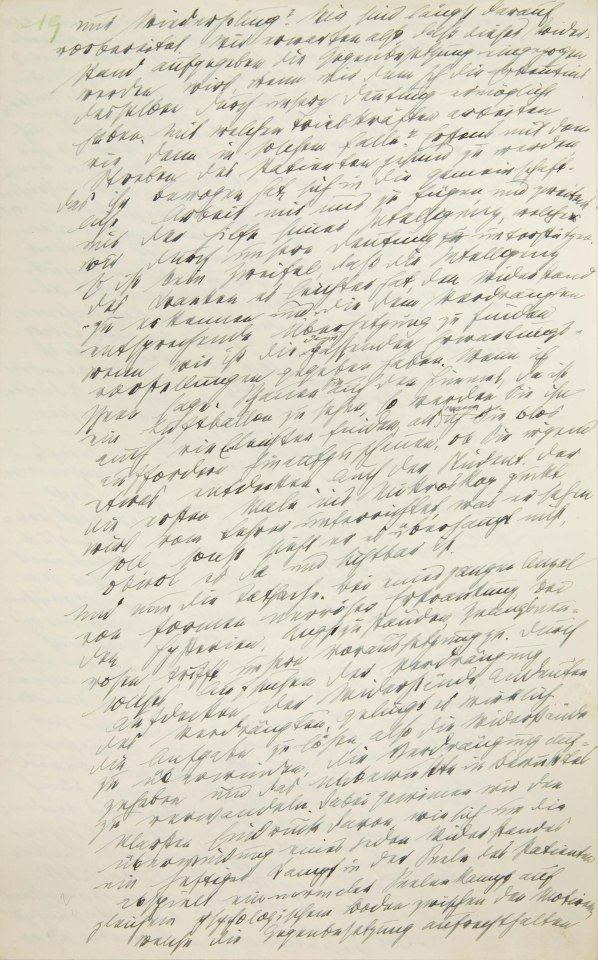 19
uns wiederholung? Wir sind längst darauf
vorbereitet. Wir erwarten also daß dieser Wider-
stand aufgegeben die Gegenbesetzung eingezogen
werden wird, wenn wir dem Ich die Erkenntnis
desselben durch unsere Deutung ermöglicht
haben. Mit welchen Triebkräften arbeiten
wir denn in solchem Falle? Erstens mit dem
Streben des Patienten gesund zu werden
das ihn bewogen hat, sich in die gemeinschaft-
liche Arbeit mit uns zu fügen und zweitens
mit der Hilfe seiner Intelligenz, welche
wir durch unsere Deutung unterstützen.
Es ist kein Zweifel, daß die Intelligenz
des Kranken es leichter hat den Widerstand
zu erkennen und die dem Verdrängten
entsprechende Übersetzung zu finden
wenn wir ihr die dazu passenden Erwartungs-
vorstellungen gegeben haben. Wenn ich
Ihnen sage: Schauen Sie auf den Himmel, da ist
ein Luftballon zu sehen, so werden Sie ihn
auch viel leichter finden, als wenn ich Sie blos
auffordere hinaufzuschauen, ob Sie irgend
etwas entdecken. Auch der Student, der
die ersten Male ins Mikroskop guckt
wird vom Lehrer unterrichtet, was er sehen
soll, sonst sieht er es überhaupt nicht,
obwol es da und sichtbar ist.
Und nun die Tatsache. Bei einer ganzen Anzal
von Formen nervöser Erkrankung, bei
den Hysterien, Angstzuständen, Zwangsneu-
rosen trifft unsere Voraussetzung zu. Durch
solches Aufsuchen der Verdrängung
Aufdecken der Widerstände Andeuten
des Verdrängten, gelingt es wirklich
die Aufgabe zu lösen also die Widerstände
zu überwinden, die Verdrängung auf-
zuheben und das Unbewußte in Bewußtes
zu verwandeln. Dabei gewinnen wir den
klarsten Eindruck davon, wie sich um die
Überwindung eines jeden Widerstandes
ein heftiger Kampf in der Seele des Patienten
abspielt ein normaler Seelenkampf auf
gleichem psychologischem Boden zwischen den Motiven
welche die Gegenbesetzung aufrechthalten